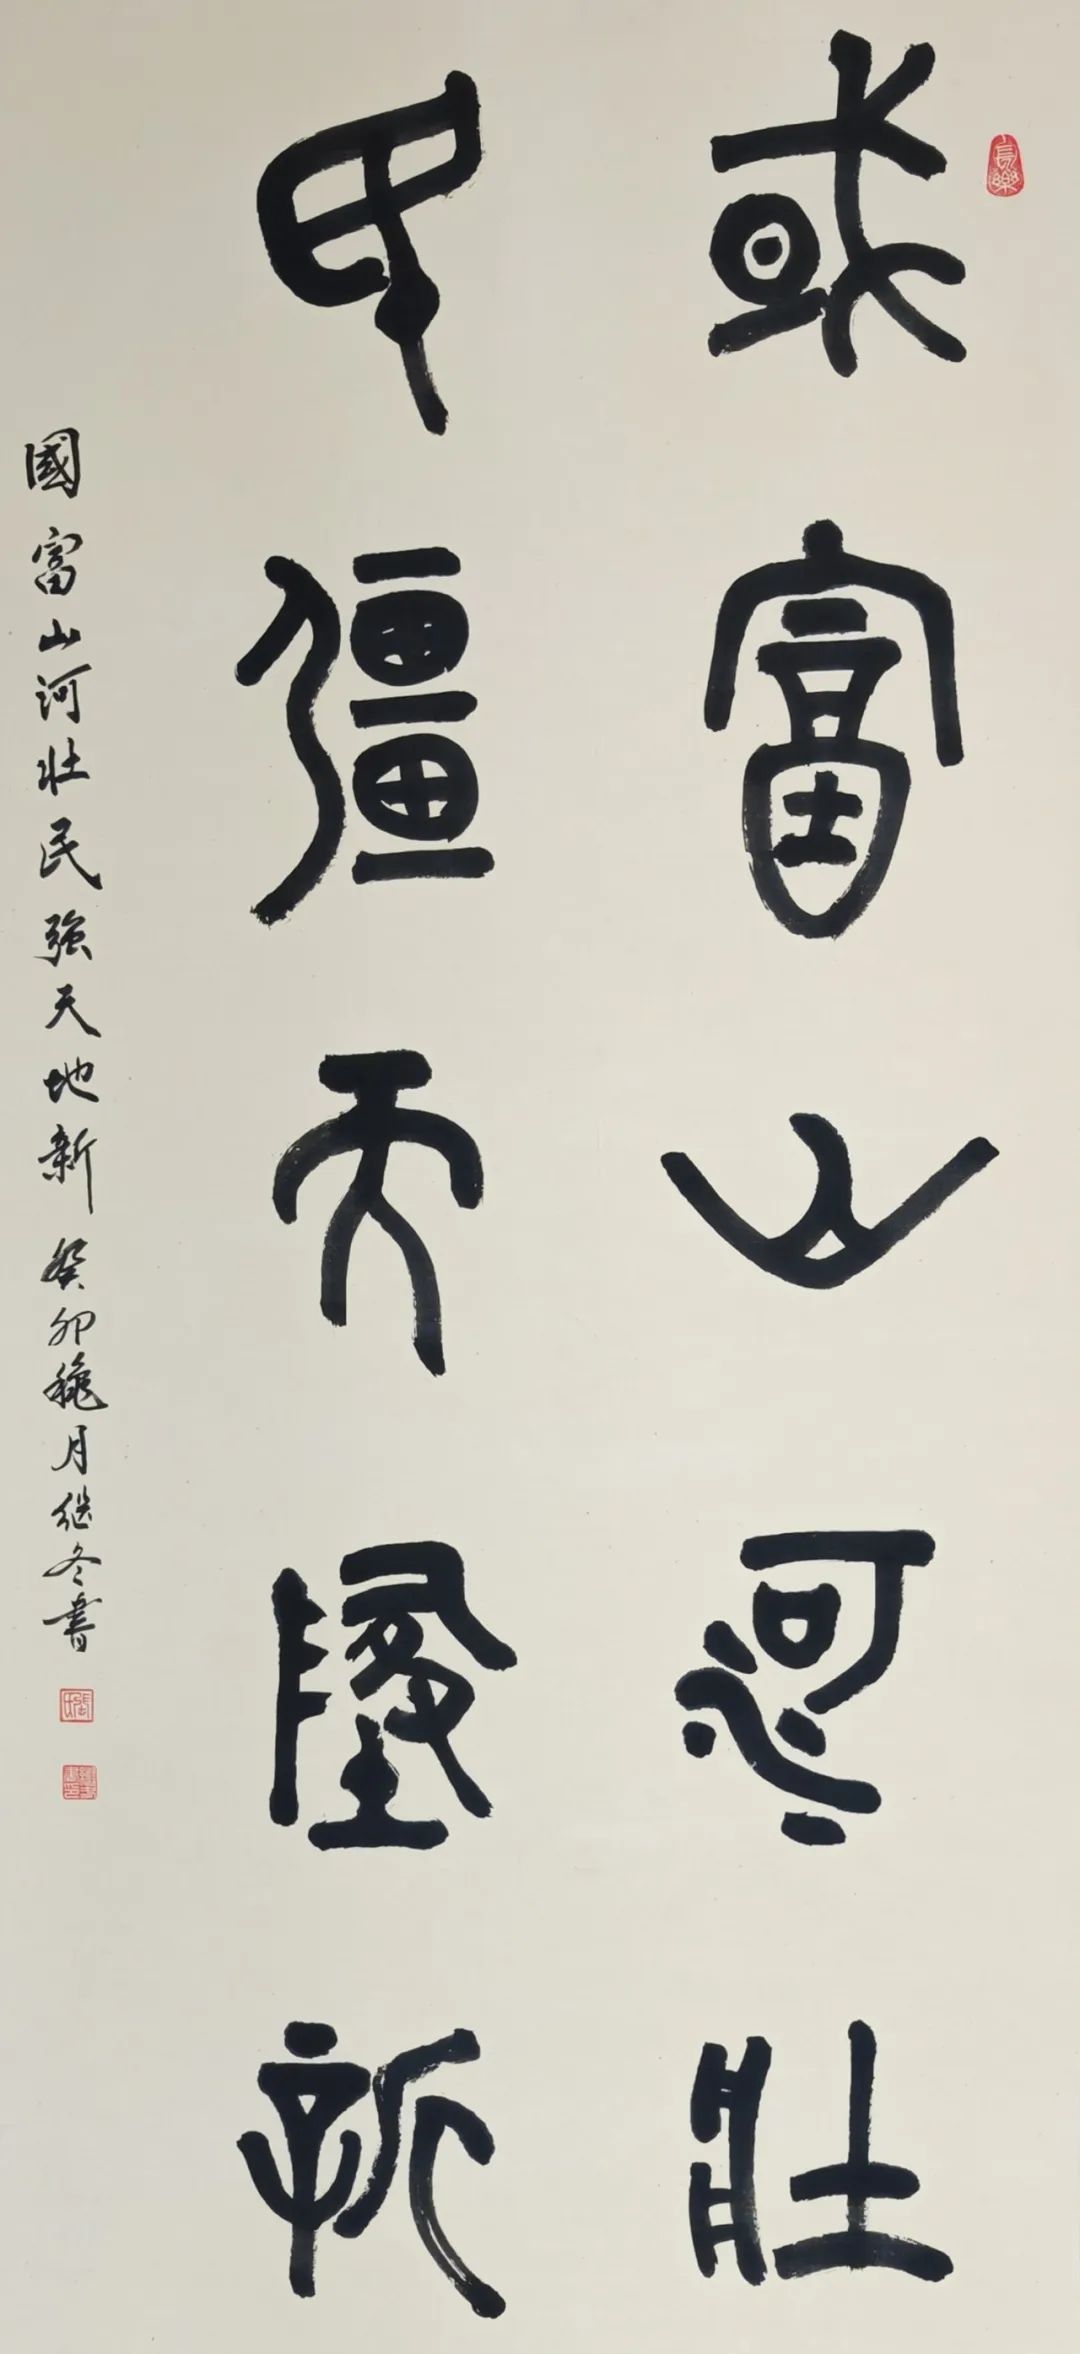 或富山河壯
民彊天墬新
國富山河壮民強天地新 癸卯穐月继冬書
長樂